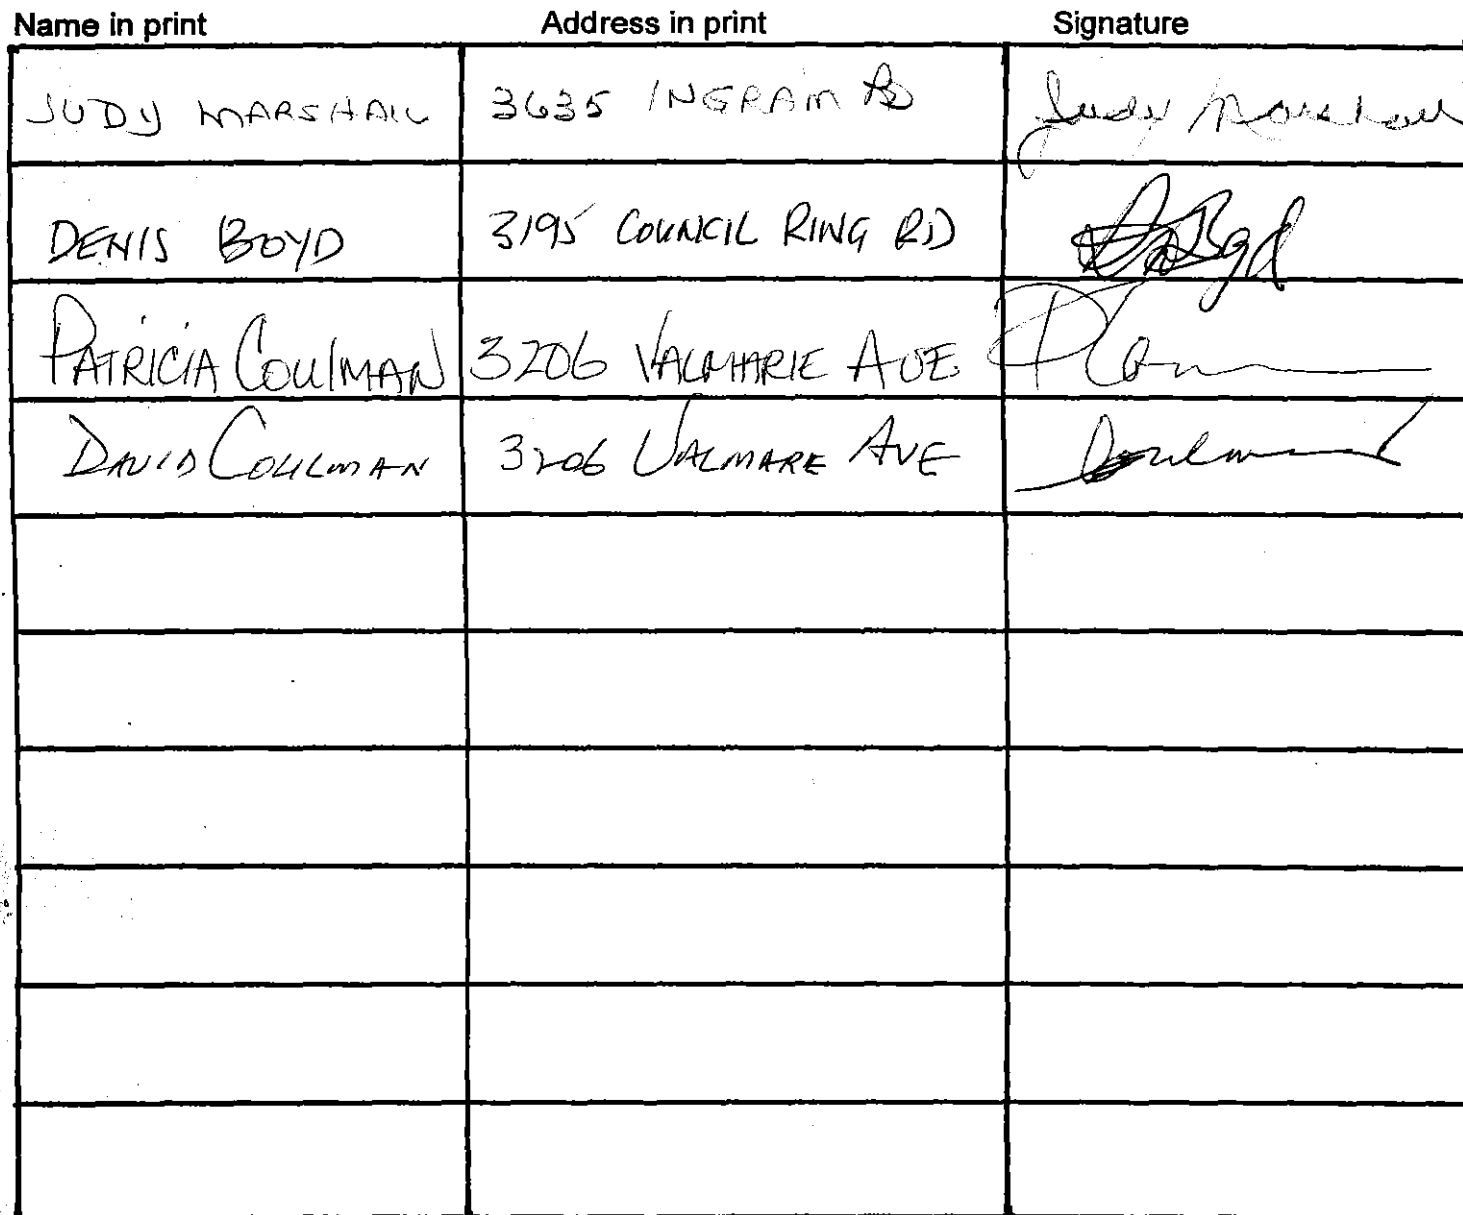 Name in print Address in print Signature
JUDY MARSHALL 3635 INGRAM RD Judy Marshall
DENIS BOYD 3195 COUNCIL RING RD Boyd
PATRICIA COULMAN 3206 VALMARIE AVE
DAVID COULMAN 3206 VALMARE AVE